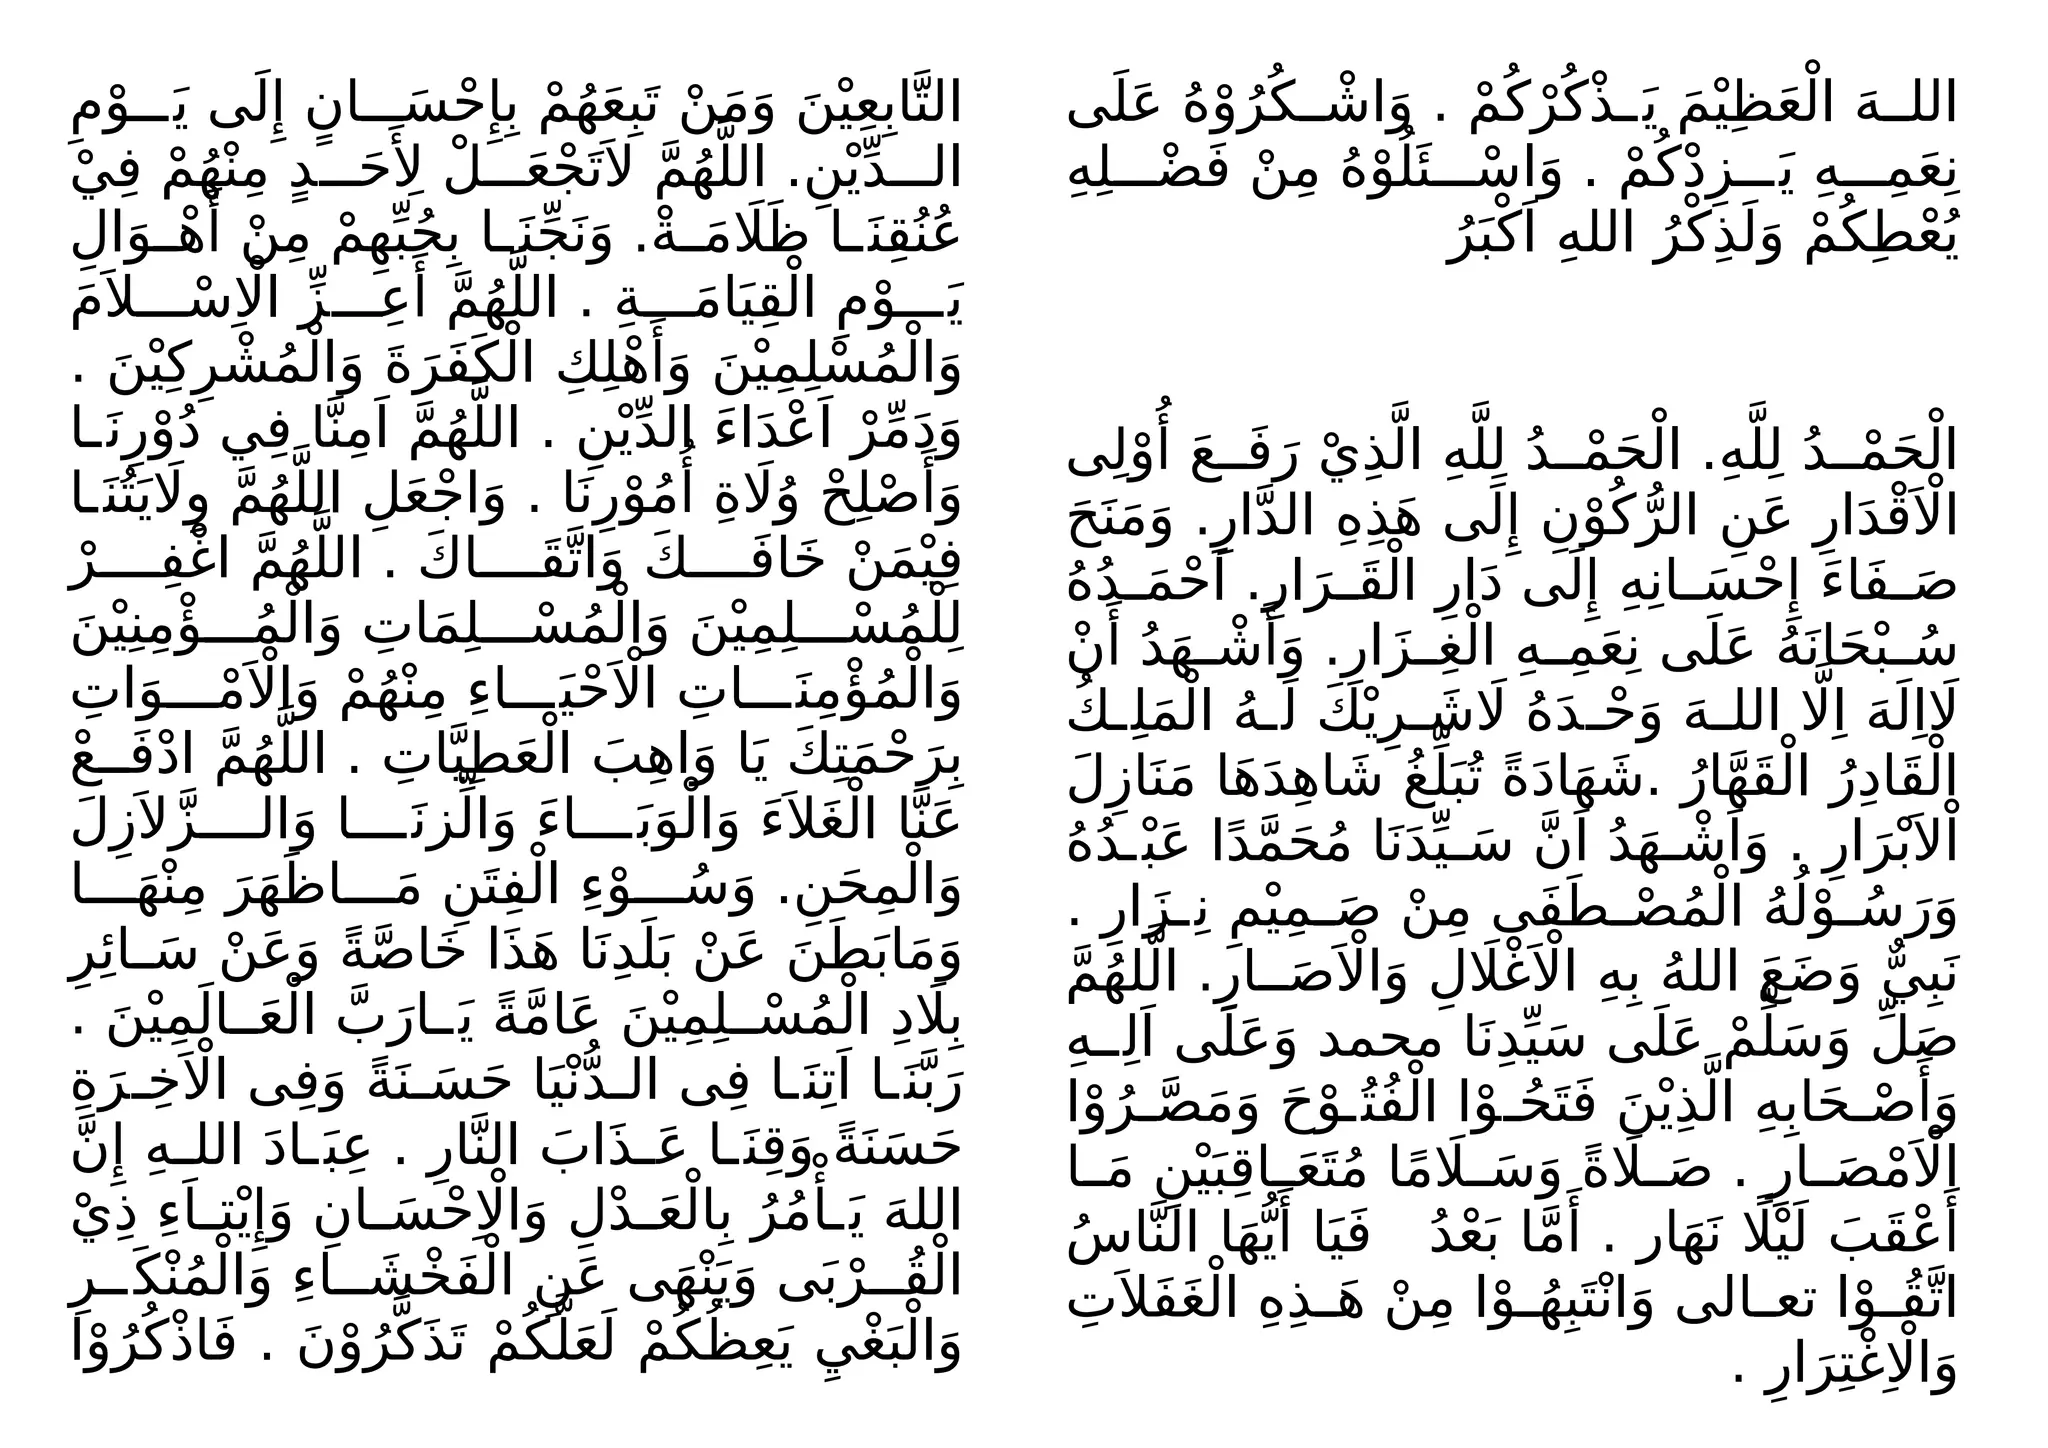 اللهَ الْعَظِيْمَ يَذْكُرْكُمْ . وَاشْكُرُوْهُ عَلَى
نِعَمِهِ يَزِدْكُمْ . وَاسْئَلُوْهُ مِنْ فَضْلِهِ
يُعْطِكُمْ وَلَذِكْرُ اللهِ اَكْبَرُ
الْحَمْدُ لِلَّهِ. الْحَمْدُ لِلَّهِ الَّذِيْ رَفَعَ أُوْلِى
الْاَقْدَارِ عَنِ الرُّكُوْنِ إِلَى هَذِهِ الدَّارِ. وَمَنَحَ
صَفَاءَ إِحْسَانِهِ إِلَى دَارِ الْقَرَارِ. اَحْمَدُهُ
سُبْحَانَهُ عَلَى نِعَمِهِ الْغِزَارِ. وَأَشْهَدُ أَنْ
لَااِلَهَ اِلَّا اللهَ وَحْدَهُ لَاشَرِيْكَ لَهُ الْمَلِكُ
الْقَادِرُ الْقَهَّارُ .شَهَادَةً تُبَلِّغُ شَاهِدَهَا مَنَازِلَ
اْلاَبْرَارِ . وَاَشْهَدُ اَنَّ سَيِّدَنَا مُحَمَّدًا عَبْدُهُ
وَرَسُوْلُهُ الْمُصْطَفَى مِنْ صَمِيْمِ نِزَارِ .
نَبِيٌّ وَضَعَ اللهُ بِهِ الْاَغْلَالِ وَالْاَصَارِ. الَّلهُمَّ
صَلِّ وَسَلِّمْ عَلَى سَيِّدِنَا محمد وَعَلَى اَلِهِ
وَأَصْحَابِهِ الَّذِيْنَ فَتَحُوْا الْفُتُوْحَ وَمَصَّرُوْا
الْاَمْصَارِ . صَلَاةً وَسَلَامًا مُتَعَاقِبَيْنِ مَا
أَعْقَبَ لَيْلًا نَهَار . أَمَّا بَعْدُ فَيَا أَيُّهَا النَّاسُ
اتَّقُوْا تعالى وَانْتَبِهُوْا مِنْ هَذِهِ الْغَفَلاَتِ
وَالْاِغْتِرَارِ .
التَّابِعِيْنَ وَمَنْ تَبِعَهُمْ بِإِحْسَانٍ إِلَى يَوْمِ
الدِّيْنِ. اللَّهُمَّ لاَتَجْعَلْ لِأَحَدٍ مِنْهُمْ فِيْ
عُنُقِنَا ظَلَامَةْ. وَنَجِّنَا بِحُبِّهِمْ مِنْ أَهْوَالِ
يَوْمِ الْقِيَامَةِ . اللَّهُمَّ أَعِزِّ الْاِسْلاَمَ
وَالْمُسْلِمِيْنَ وَأَهْلِكِ الْكَفَرَةَ وَالْمُشْرِكِيْنَ .
وَدَمِّرْ اَعْدَاءَ الدِّيْنِ . اللَّهُمَّ اَمِنَّا فِي دُوْرِنَا
وَأَصْلِحْ وُلَاةِ أُمُوْرِنَا . وَاجْعَلِ اللَّهُمَّ وِلَايَتُنَا
فِيْمَنْ خَافَكَ وَاتَّقَاكَ . اللَّهُمَّ اغْفِرْ
لِلْمُسْلِمِيْنَ وَالْمُسْلِمَاتِ وَالْمُؤْمِنِيْنَ
وَالْمُؤْمِنَاتِ الْاَحْيَاءِ مِنْهُمْ وَالْاَمْوَاتِ
بِرَحْمَتِكَ يَا وَاهِبَ الْعَطِيَّاتِ . اللَّهُمَّ ادْفَعْ
عَنَّا الْغَلاَءَ وَالْوَبَاءَ وَالِّزنَا وَالزَّلاَزِلَ
وَالْمِحَنِ. وَسُوْءِ الْفِتَنِ مَاظَهَرَ مِنْهَا
وَمَابَطَنَ عَنْ بَلَدِنَا هَذَا خَاصَّةً وَعَنْ سَائِرِ
بِلَادِ الْمُسْلِمِيْنَ عَامَّةً يَارَبَّ الْعَالَمِيْنَ .
رَبَّنَا اَتِنَا فِى الدُّنْيَا حَسَنَةً وَفِى الْاَخِرَةِ
حَسَنَةً وَقِنَا عَذَابَ النَّارِ . عِبَادَ اللهِ إِنَّ
اللهَ يَأْمُرُ بِالْعَدْلِ وَالْاِحْسَانِ وَإِيْتِاَءِ ذِيْ
الْقُرْبَى وَيَنْهَى عَنِ الْفَخْشَاءِ وَالْمُنْكَرِ
وَالْبَغْيِ يَعِظُكُمْ لَعَلَّكُمْ تَذَكَّرُوْنَ . فَاذْكُرُوْا